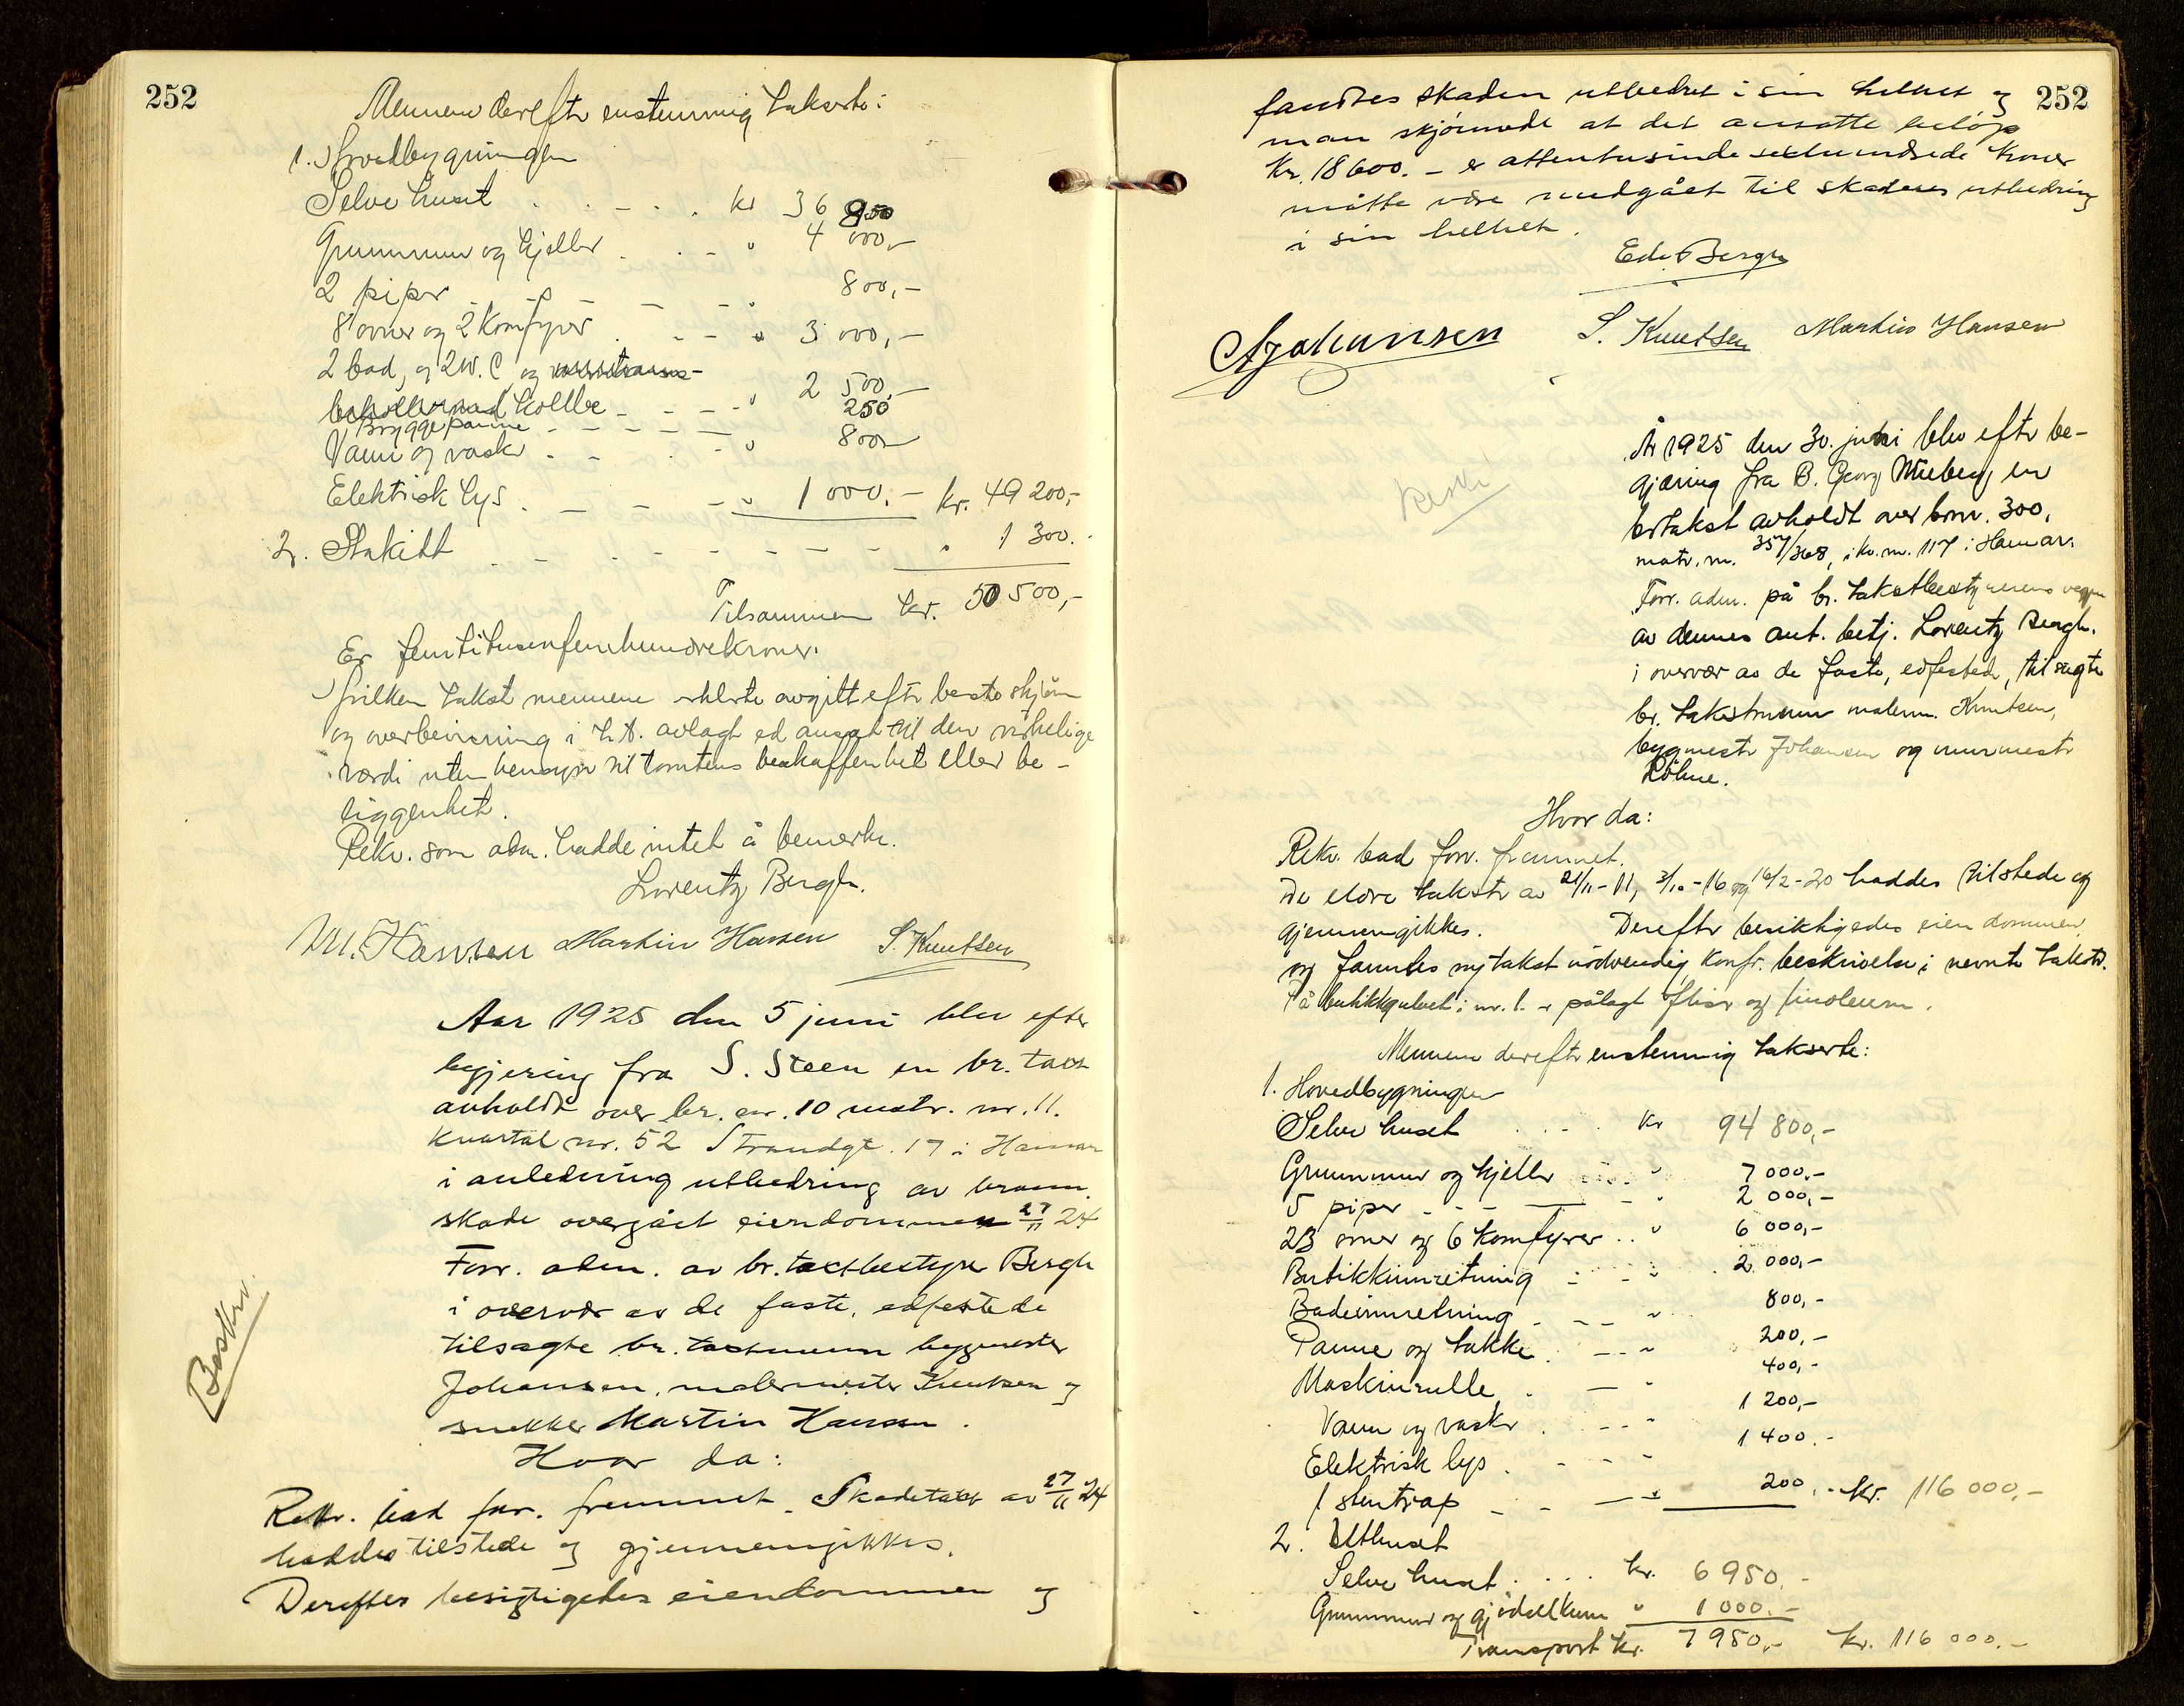 252
Mennene derefter enstemmig takserte:
1. Hovedbygningen
Selve huset . . - . . kr 36 850
Grunnmur og kjeller . . - „ 4 000,-
2 piper - - - - - „ 800,-
8 ovner og 2 komfyrer . - - „ 3 000,-
2 bad, og 2 W.C og
kolbe - - - - „ 2 500,-
Bryggepanne - - - - - 250
Vann og vask . - - . - „ 800,-
Elektrisk lys . - - - - „ 1 000.- kr. 49 200,-
2. Stakitt . . - . - - - - - - „ 1 300.-
Tilsammen kr. 50 500,-
Er femtitusenfemhundrekroner.
Hvilken takst mennene erklerte avgitt efter beste skjøn
og overbevisning i h.t. avlagt ed ansat til den virkelige
værdi uten hensyn til tomtens beskaffenhet eller be-
liggenhet.
Rekv. som adm. hadde intet å bemerke.
Lorentz Bergh.
M. Hansen Martin Hansen S. Knutsen
Aar 1925 den 5 juni blev efter
begjering fra S. Steen en br. taxt
avholdt over br. nr. 10 matr. nr. 11.
Kvartal nr. 52 Strandgt. 17 i Hamar
i anledning utbedring av brann-
skade overgået eiendommen 27/11 24
Forr. adm. av br. taxtbestyrer Bergh
i overvær av de faste, edfestede
tilsagte br. taxtmenn bygmester
Johansen, malermester Knutsen og
snekker Martin Hansen.
Hvor da:
Beskr.
Rekv. bad forr. fremmet. Skadetaxt av 27/11 24
haddes tilstede og gjennemgikkes.
Derefter besigtigedes eiendommen og
252
fandtes skaden utbedret i sin helhet og
man skjønnede at det ansatte beløp
Kr. 18600.- er attentusinde sexhundrede kroner
måtte være medgået til skadens utbedring
i sin helhet.
Edv. Bergh
A Johansen S. Knutsen Martin Hansen
År 1925 den 30. juni blev efter be-
gjæring fra B. Georg Wiiberg en
br takst avholdt over br nr. 300,
matr. nr. 357/368, i kv. nr. 117 i Hamar.
Forr. adm. på br. takstbestyrerens vegne
av dennes aut. betj. Lorentz Bergh.
i overvær av de faste, edfestede, tilsagte
br. takstmenn malerm. Knutsen,
bygmester Johansen og murmester
Röhne.
Beskr.
Hvor da:
Rekv. bad forr. fremmet.
De eldre takster av 21/11-11, 3/10-16 og 16/2-20 haddes tilstede og
gjennemgikkes. Derefter besiktigedes eiendommen
og fantes ny takst nødvendig, konfr. beskrivelse i nevnte takster.
På butikkgulvet i nr. 1. er pålagt fliser og linoleum.
Mennene derefter enstemmig takserte:
1. Hovedbygningen
Selve huset . . - . kr 94 800,-
Grunnmur og kjeller . . . „ 7 000,-
5 piper - - - - - „ 2 000,-
23 ovner og 6 komfyrer . . „ 6 000,-
Butikkinnretning - - - „ 2 000,-
Badeinnretning . - - „ 800,-
Panne og takke . - - „ 200,-
Maskinrulle . - „ 400,-
Vann og vask . - - „ 1 200,-
Elektrisk lys . - - - 1 400.-
1 stentrap - - - „ 200,- kr. 116 000,-
2. Uthuset
Selve huset . . . . kr. 6 950.-
Grunnmur og gjødselkum „ 1 000.-
Transport kr. 7 950,- kr. 116 000.-